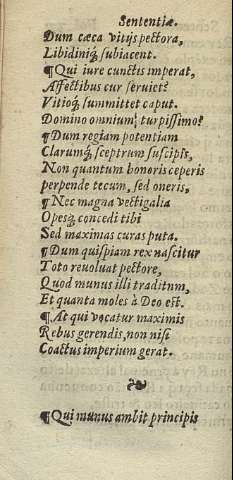 Sententiæ.
Dum cæca vitijs pectora,
Libidiniq́; subiacent.
¶Qui iure cunctis imperat,
Affectibus cur seruiet?
Vitioq́; summittet caput.
Domino omnium; turpissimo?
¶Dum regiam potentiam
Clarumq́; sceptrum suscipis,
Non quantum honoris ceperis
perpende tecum, sed oneris,
¶Nec magna vectigalia
Opesq́; concedi tibi
Sed maximas curas puta.
¶Dum quispiam rex nascitur
Toto reuoluat pectore,
Quod munus illi traditum,
Et quanta moles à Deo est.
¶At qui vocatur maximis
Rebus gerendis, non nisi
Coactus imperium gerat.
¶Qui munus ambit principis